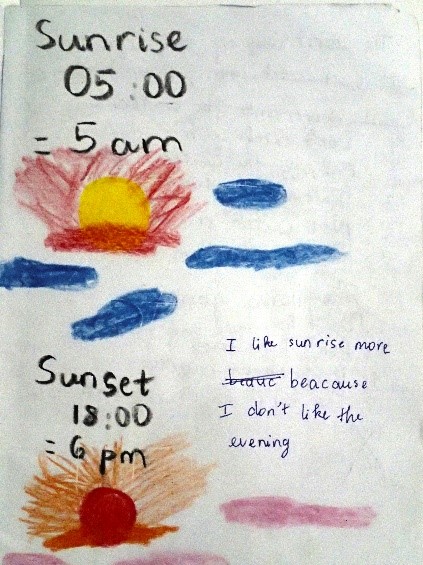 Sunrise
05:00
= 5 am
Sunset
18:00
= 6 pm
I like sunrise more
beacause
I don't like the
evening